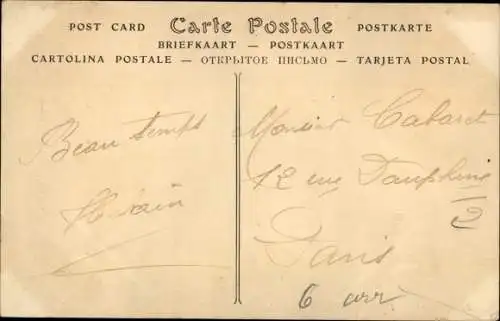 POST CARD Carte Postale POSTKARTE
BRIEFKAART — POSTKAART
CARTOLINA POSTALE — ОТКРЫТОЕ ПИСЬМО — TARJETA POSTAL
Beau temps
Monsieur Cabaret
12 rue Dauphine
2
Paris
6 arr